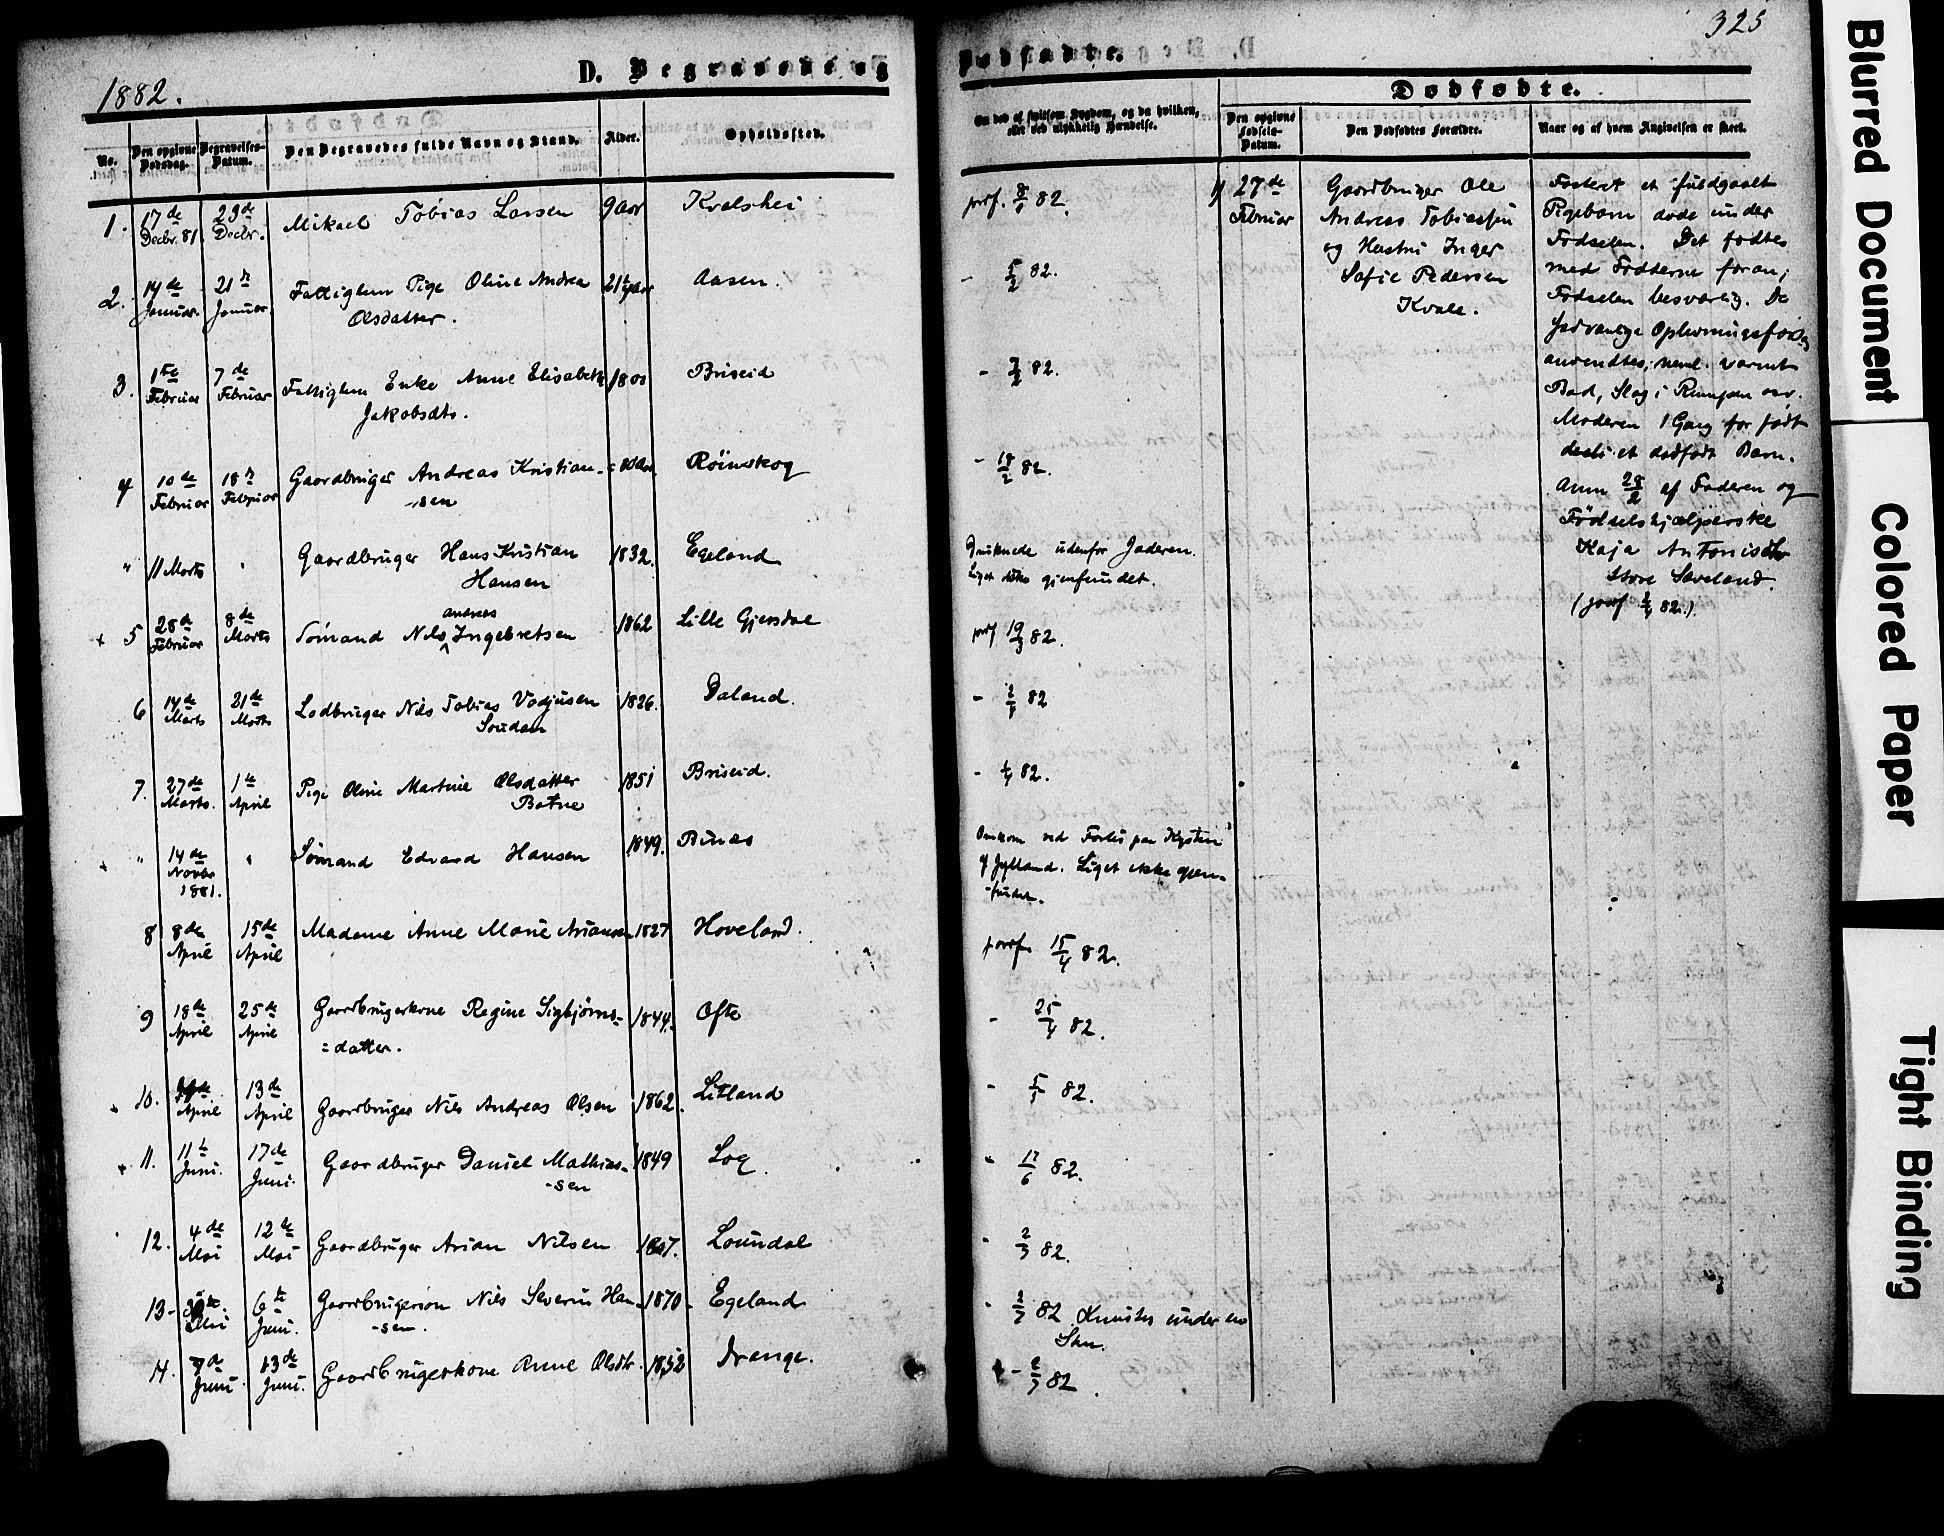 1882.
D. Begravede og
No.
Den opgivne Dødsdag.
Begravelses-Datum.
Den Begravedes fulde Navn og Stand.
Alder.
Opholdssted.
1. 17de Decbr. 81. 23de Decbr. Mikael Tobias Larsen 9 aar Kvalshei
2. 14de Januar. 21de Januar. Fattiglem Pige Oline Andrea 21½ aar Aasen.
Olsdatter.
3. 1ste Februar 7de Februar Fattiglem Enke Anne Elisabeth 1800 Briseid
Jakobsdtr.
4 10de Februar 18de Februar Gaardbruger Andreas Kristian- Röinskog
-sen
" 11 Marts " Gaardbruger Hans Kristian 1832. Egeland
Hansen
andreas
+ 5 28de Februar 8de Marts Sömand Nils Ingebretsen 1862 Lille Gjersdal
6 14de Marts 21de Marts Lodbruger Nils Tobias 1826. Daland.
7. 27de Marts. 1ste April Pige Oline Martine Olsdatter 1851 Briseid.
Botne
" 14de Novbr 1881. " Sömand Edvard Hansen 1849. Binæs
8 8de April 15de April Madame Anne Marie 1827 Hoveland.
9 18de April 25de April Gaardbrugerkone Regine Sigbjörns- 1844. Ofte
=datter.
10. April 13de April Gaardbruger Nils Andreas Olsen 1862. Litland
11. 11te Juni. 17de Juni. Gaardbruger Daniel Mathias- 1849 Log
-sen
12. 4de Mai 12te Mai Gaardbruger Arian Nilsen Loundal
13- Mai 6te Juni. Gaardbrugersön Nils Severin Han- 1870- Egeland
-sen.
14. 7de Juni 13de Juni. Gaardbrugerkone Anne Olsdtr. 1852 Drange.
325
Dødfødte.
Om død af smitsom Sygdom, og da hvilken,
eller ved ulykkelig Hændelse.
Dødfødte.
Den opgivne Fødsels-Datum.
Den Dødfødtes Forældre.
Naar og af hvem Angivelsen er skeet.
prof. 8/1 82.
- 5/2 82.
- 7/2 82.
- 18/2 82.
Druknede udenfor Jæderen.
Liget ikke gjenfundet.
prof 19/3 82.
- 2/4 82
- 4/4 82.
Omkom ved Forlis paa Kysten
af Jylland. Liget ikke gjen-
-fundet.
prof. 15/4 82.
- 25/4 82.
- 5/5 82.
- 17/6 82.
- 2/7 82.
- 2/7 82 Knustes under en
Sten.
- 2/7 82.
1) 27de Februar
Gaardbruger Ole
Andreas Tobiassen
og Hustru Inger
Sofie Pedersen
Kvale.
Fosteret et fuldgaaet
Pigebarn døde under
Fødselen. Det fødtes
med Fødderne foran;
Fødselen besværlig. De
sædvanlige Oplivningsforsøg
anvendtes, neml. varmt
Bad, Slag i Rumpen osv.
Moderen 1 Gang før født
et dødfødt Barn.
Anm 28/2 af Faderen og
Fødselshjælperske
Kaja Antonisdtr
Store Sæveland.
(prof 2/4 82.)
Blurred Document
Colored Paper
Tight Binding